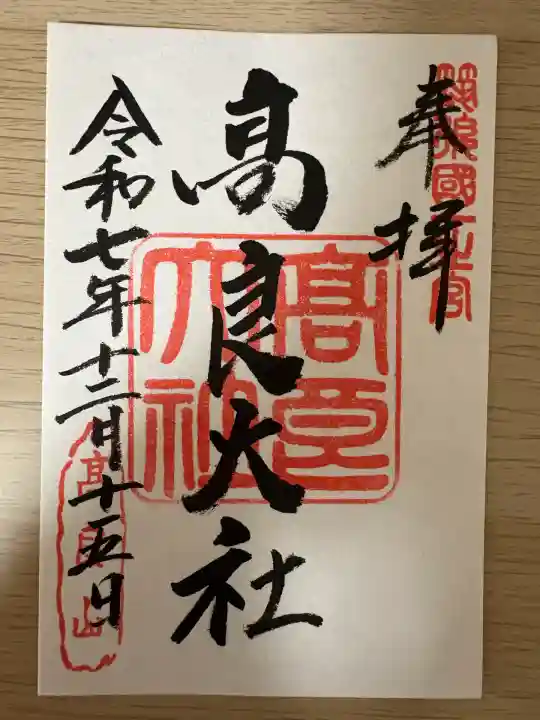 奉拝
筑後國一之宮
髙良大社
髙良大社
令和七年十二月十五日
髙良山